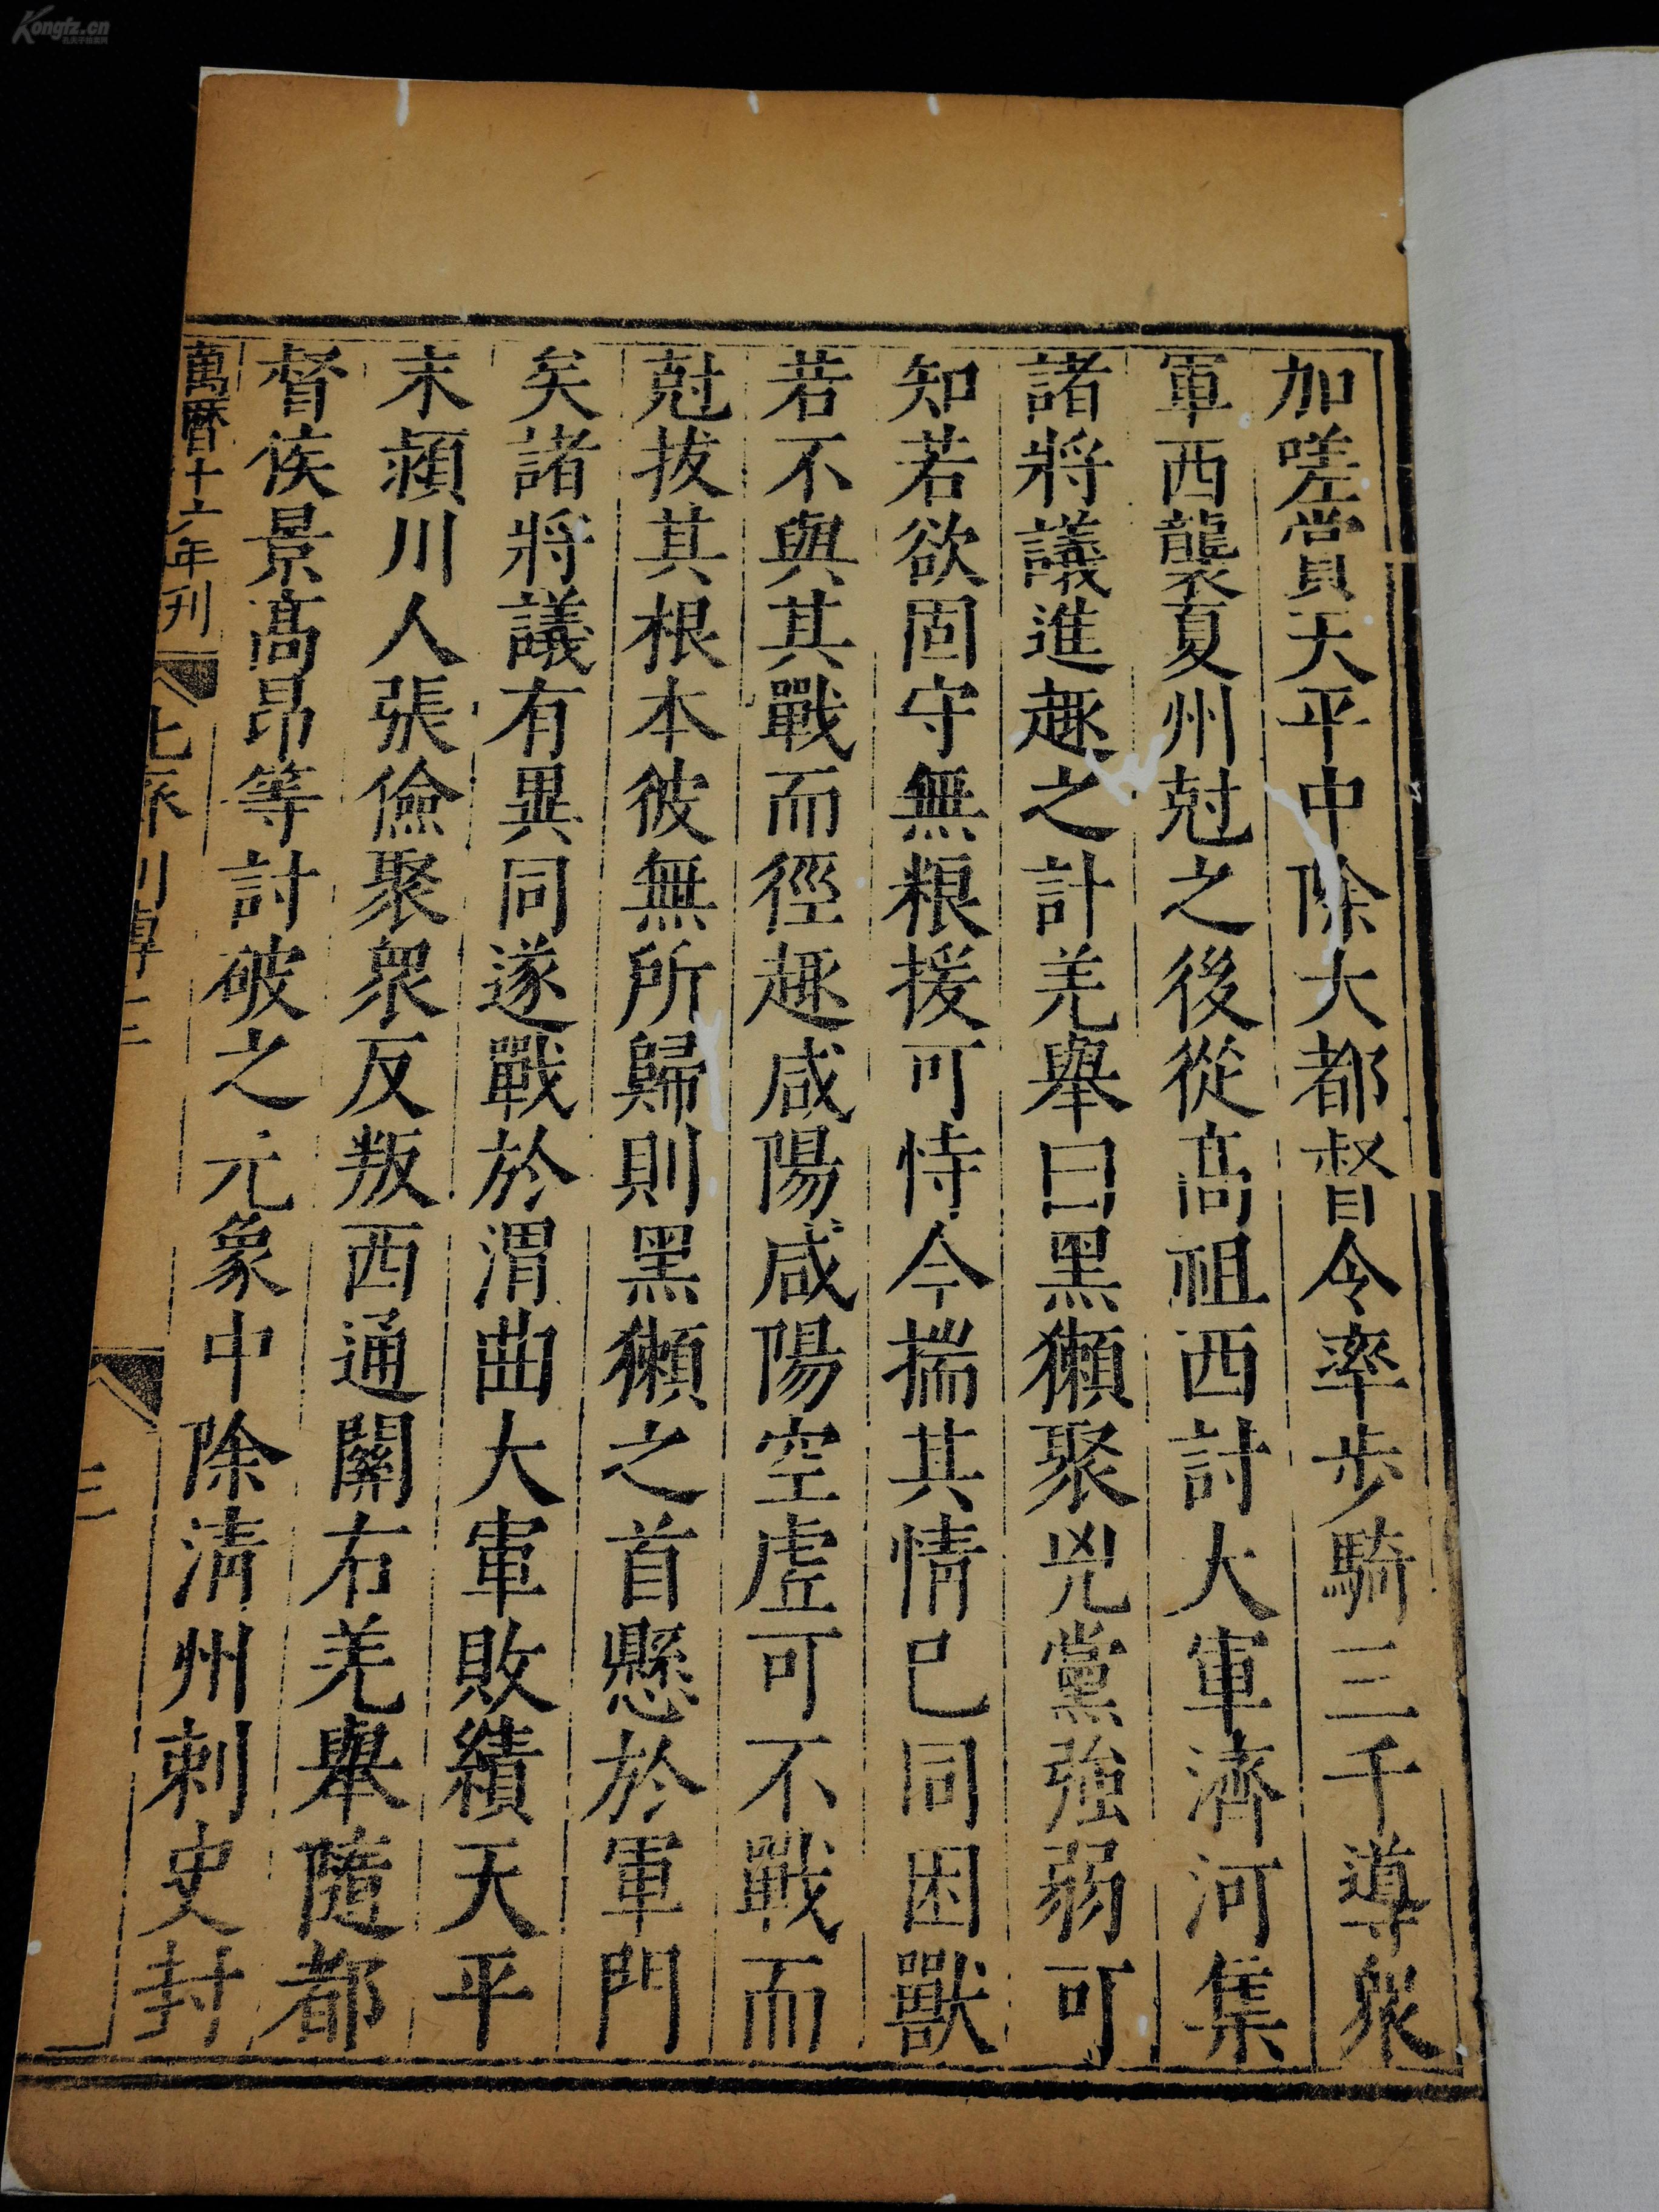 Kongfz.cn
加嗟賞天平中除大都督令率步騎三千導衆
軍西襲夏州尅之後從高祖西討大軍濟河集
諸將議進趣之計羌舉曰黑獺聚兇黨強弱可
知若欲固守無粮援可恃今揣其情已同困獸
若不與其戰而徑趣咸陽咸陽空虛可不戰而
尅拔其根本彼無所歸則黑獺之首懸於軍門
矣諸將議有異同遂戰於渭曲大軍敗績天平
末潁川人張儉聚衆反叛西通關右羌舉隨都
督侯景高昂等討破之元象中除清州刺史封
萬曆十六年刊
三